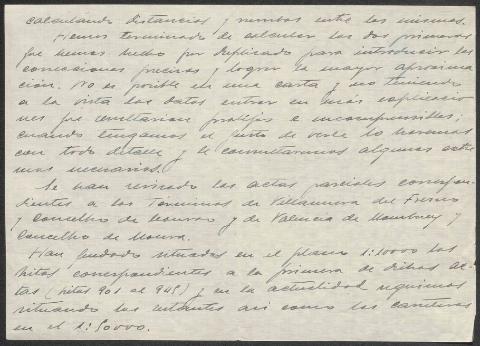 calculando distancias y rumbos entre los mismos.
Hemos terminado de calcular los dos primeros
que hemos hecho por duplicado para introducir las
correcciones precisas y lograr la mayor aproxima
ción. No es posible en una carta y no teniendo
a la vista los datos entrar en más explicacio
nes que resultarían prolijas e incomprensibles;
cuando tengamos el gusto de verle lo haremos
con todo detalle y le consultaremos algunos extre
mos necesarios.
Se han revisado las actas parciales correspon-
dientes a los Términos de Villanueva del Fresno
y Concelho de Mourao y de Valencia de Mombuey y
Concelho de Moura.
Han quedado situados en el plano 1:10000 los
hitos correspondientes a la primera de dichas ac-
tas (hitos 901 al 945) y en la actualidad seguimos
situando los restantes asi como las canteras
en el 1:50000.